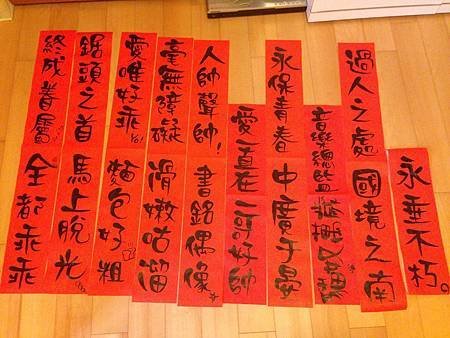 永垂不朽。
過人之處
國境之南
音樂總監
永保青春
中廣于晏
愛一直在
一哥好帥
人帥聲帥!
書銘偶像
毫無障礙
滑嫩咕溜
愛唯好乖
麵包好粗
鋸頭之首
馬上脫光
終成眷屬
全都乖乖